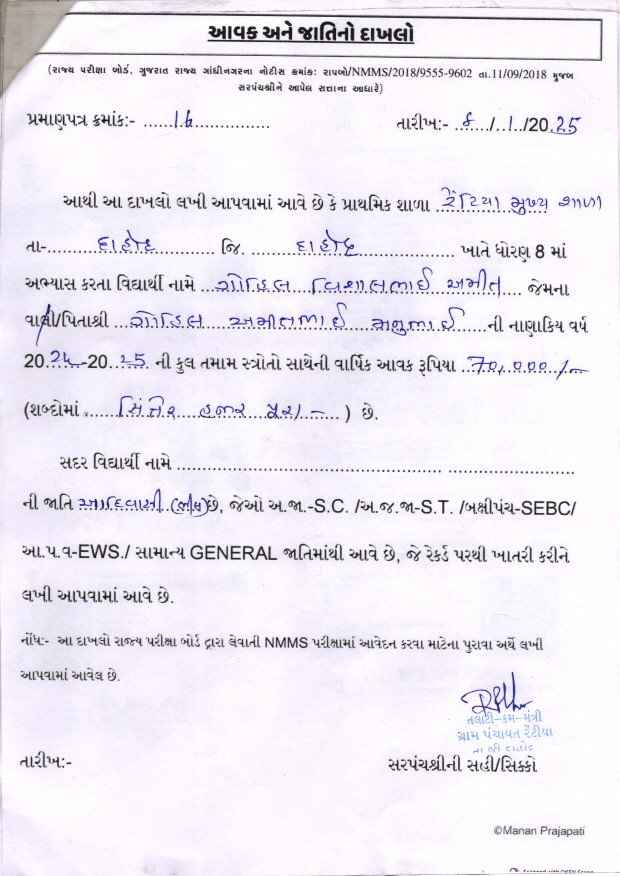 આવક અને જાતિનો દાખલો
(રાજ્ય પરીક્ષા બોર્ડ, ગુજરાત રાજ્ય ગાંધીનગરના નોટીસ ક્રમાંક: રાપબો/NMMS/2018/9555-9602 તા.11/09/2018 મુજબ
સરપંચશ્રીને આપેલ સત્તાના આધારે)
પ્રમાણપત્ર ક્રમાંક:- ......16................ તારીખ:- ..8../..1../2025
આથી આ દાખલો લખી આપવામાં આવે છે કે પ્રાથમિક શાળા રેંટિયા મુખ્ય શાળા
તા-.......દાહોદ.......... જિ. .......દાહોદ.............. ખાતે ધોરણ 8 માં
અભ્યાસ કરતા વિદ્યાર્થી નામે ..ગોહિલ વિશાલભાઈ અમીત.... જેમના
વાલી/પિતાશ્રી ...ગોહિલ અમીતભાઈ ......ની નાણાકિય વર્ષ
2024-2025 ની કુલ તમામ સ્ત્રોતો સાથેની વાર્ષિક આવક રૂપિયા ..70,000/-
(શબ્દોમાં ......સિત્તેર હજાર પુરા -...) છે.
સદર વિદ્યાર્થી નામે ............................................. ......................
ની જાતિ આદિવાસી (ભીલ) છે, જેઓ અ.જા.-S.C. /અ.જ.જા-S.T. /બક્ષીપંચ-SEBC/
આ.પ.વ-EWS./ સામાન્ય GENERAL જાતિમાંથી આવે છે, જે રેકર્ડ પરથી ખાતરી કરીને
લખી આપવામાં આવે છે.
નોંધ:- આ દાખલો રાજ્ય પરીક્ષા બોર્ડ દ્વારા લેવાની NMMS પરીક્ષામાં આવેદન કરવા માટેના પુરાવા અર્થે લખી
આપવામાં આવેલ છે.
તલાટી-કમ-મંત્રી
ગ્રામ પંચાયત રેંટીયા
તા.જી.દાહોદ
તારીખ:- સરપંચશ્રીની સહી/સિક્કો
©Manan Prajapati